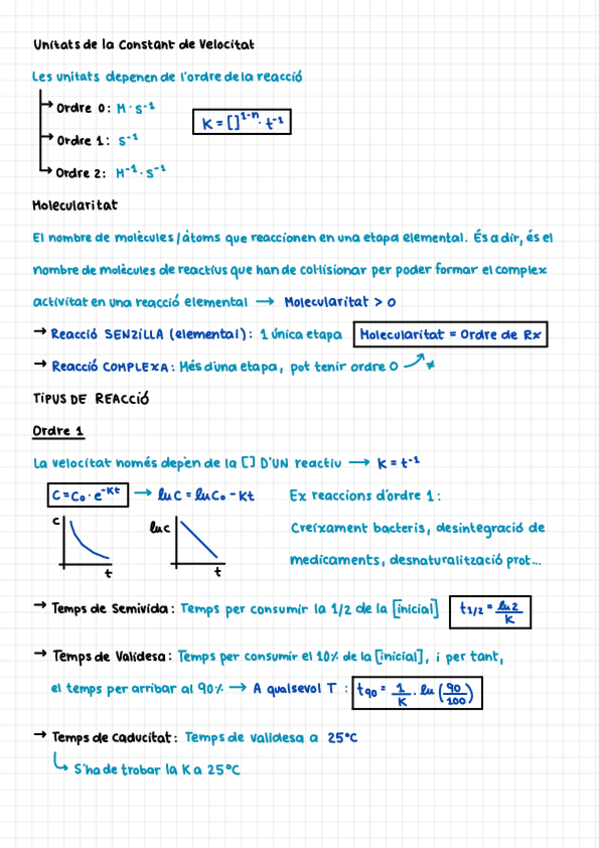 Unitats de la Constant de Velocitat
Les unitats depenen de l'ordre de la reacció
→ Ordre 0: M · s⁻¹
K = []¹⁻ⁿ · t⁻¹
→ Ordre 1: s⁻¹
→ Ordre 2: M⁻¹ · s⁻¹
Molecularitat
El nombre de molècules / àtoms que reaccionen en una etapa elemental. És a dir, és el
nombre de molècules de reactius que han de col·lisionar per poder formar el complex
activitat en una reacció elemental → Molecularitat > 0
→ Reacció SENZILLA (elemental): 1 única etapa Molecularitat = Ordre de Rx
→ Reacció COMPLEXA: Més d'una etapa, pot tenir ordre 0 ↗ ≠
TIPUS DE REACCIÓ
Ordre 1
La velocitat només depèn de la [] D'UN reactiu → K = t⁻¹
C = C₀ · e⁻ᴷᵗ → ln C = ln C₀ - Kt Ex reaccions d'ordre 1:
C
t
ln C
t
Creixament bacteris, desintegració de
medicaments, desnaturalització prot...
→ Temps de Semivida: Temps per consumir la 1/2 de la [inicial] t₁/₂ = ln2/K
→ Temps de Validesa: Temps per consumir el 10% de la [inicial], i per tant,
el temps per arribar al 90% → A qualsevol T : t₉₀ = 1/K · ln (90/100)
→ Temps de Caducitat: Temps de validesa a 25°C
↳ S'ha de trobar la K a 25°C